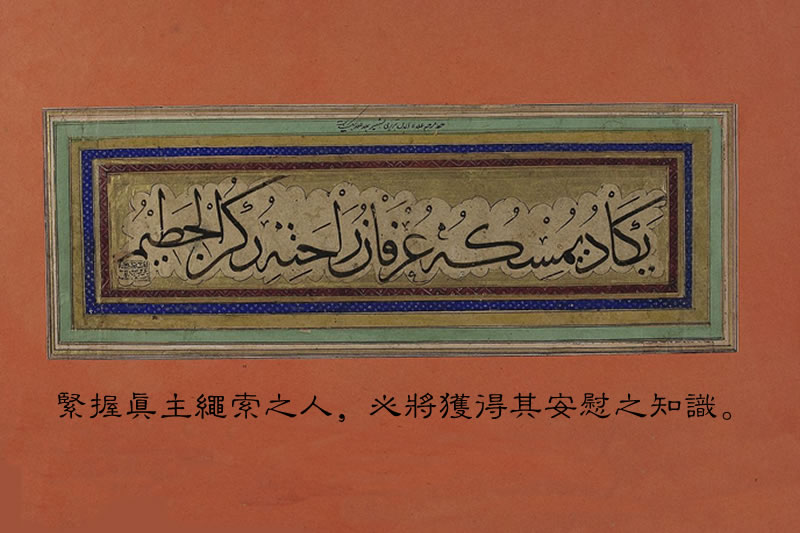 يَكَادُ يُمْسِكُهُ عِرْفَانُ رَاحَتِهِ رُكْنُ الْحَطِيمِ
緊握眞主繩索之人，必將獲得其安慰之知識。